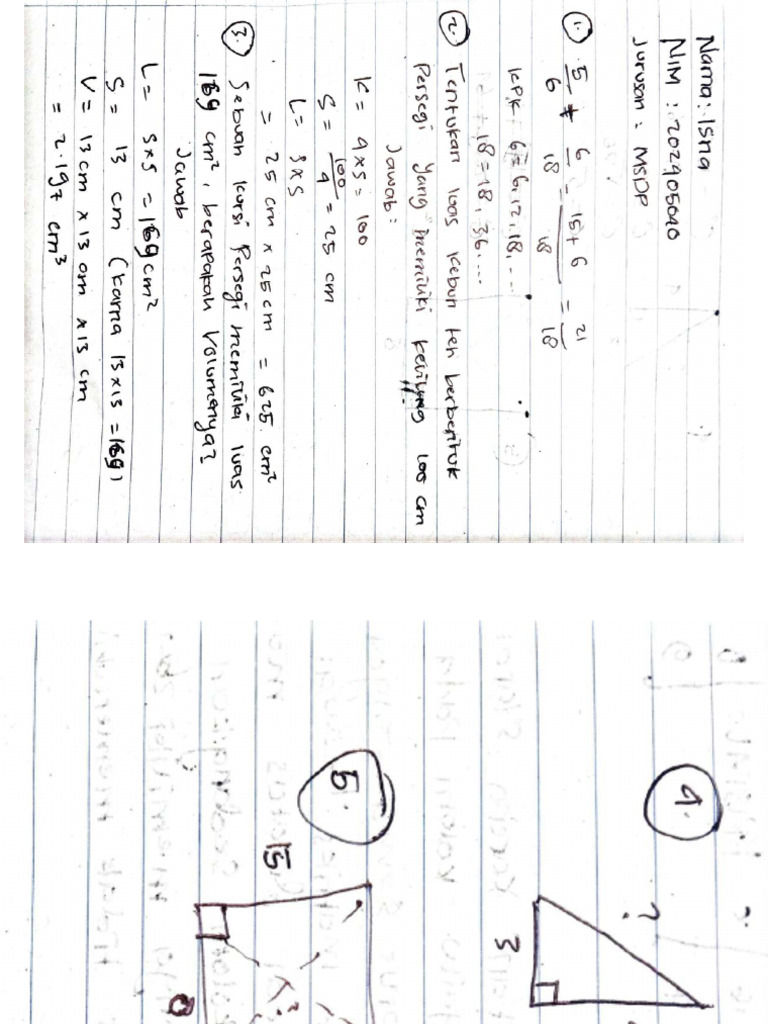 Nama: Isna
NIM : 202405040
Jurusan : MSDP
1. 5/6 + 6/18 = 15+6/18 = 21/18
KPK = 6 = 6, 12, 18, ...
18 = 18, 36, ...
2. Tentukan luas kebun teh berbentuk
Persegi yang memiliki keliling 100 cm
Jawab :
K = 4 x s = 100
S = 100/4 = 25 cm
L = s x s
= 25 cm x 25 cm = 625 cm²
3. Sebuah kursi Persegi memiliki luas
169 cm², berapakah Volumenya?
Jawab
L = s x s = 169 cm²
S = 13 cm (karna 13 x 13 = 169)
V = 13 cm x 13 cm x 13 cm
= 2.197 cm³
4.
?
3
5.
15
?